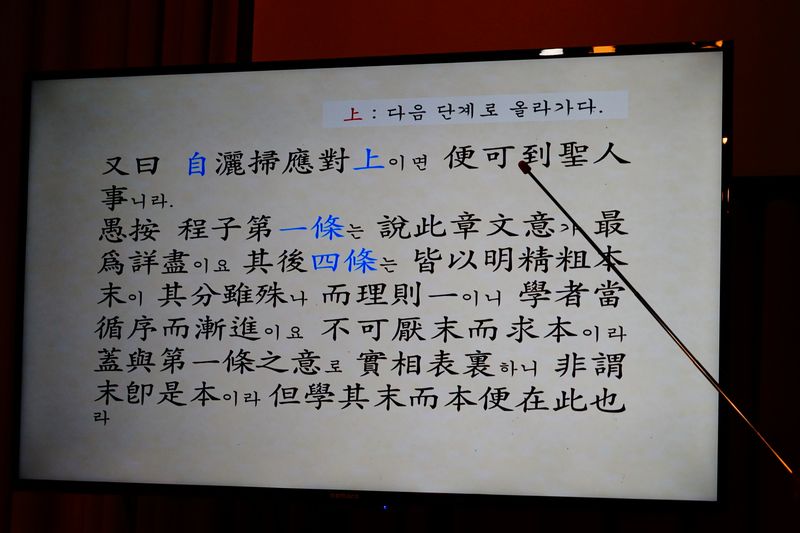 上 : 다음 단계로 올라가다.
又曰 自灑掃應對上이면 便可到聖人
事니라.
愚按 程子第一條는 說此章文意가 最
爲詳盡이요 其後四條는 皆以明精粗本
末이 其分雖殊나 而理則一이니 學者當
循序而漸進이요 不可厭末而求本이라
蓋與第一條之意로 實相表裏하니 非謂
末卽是本이라 但學其末而本便在此也
라